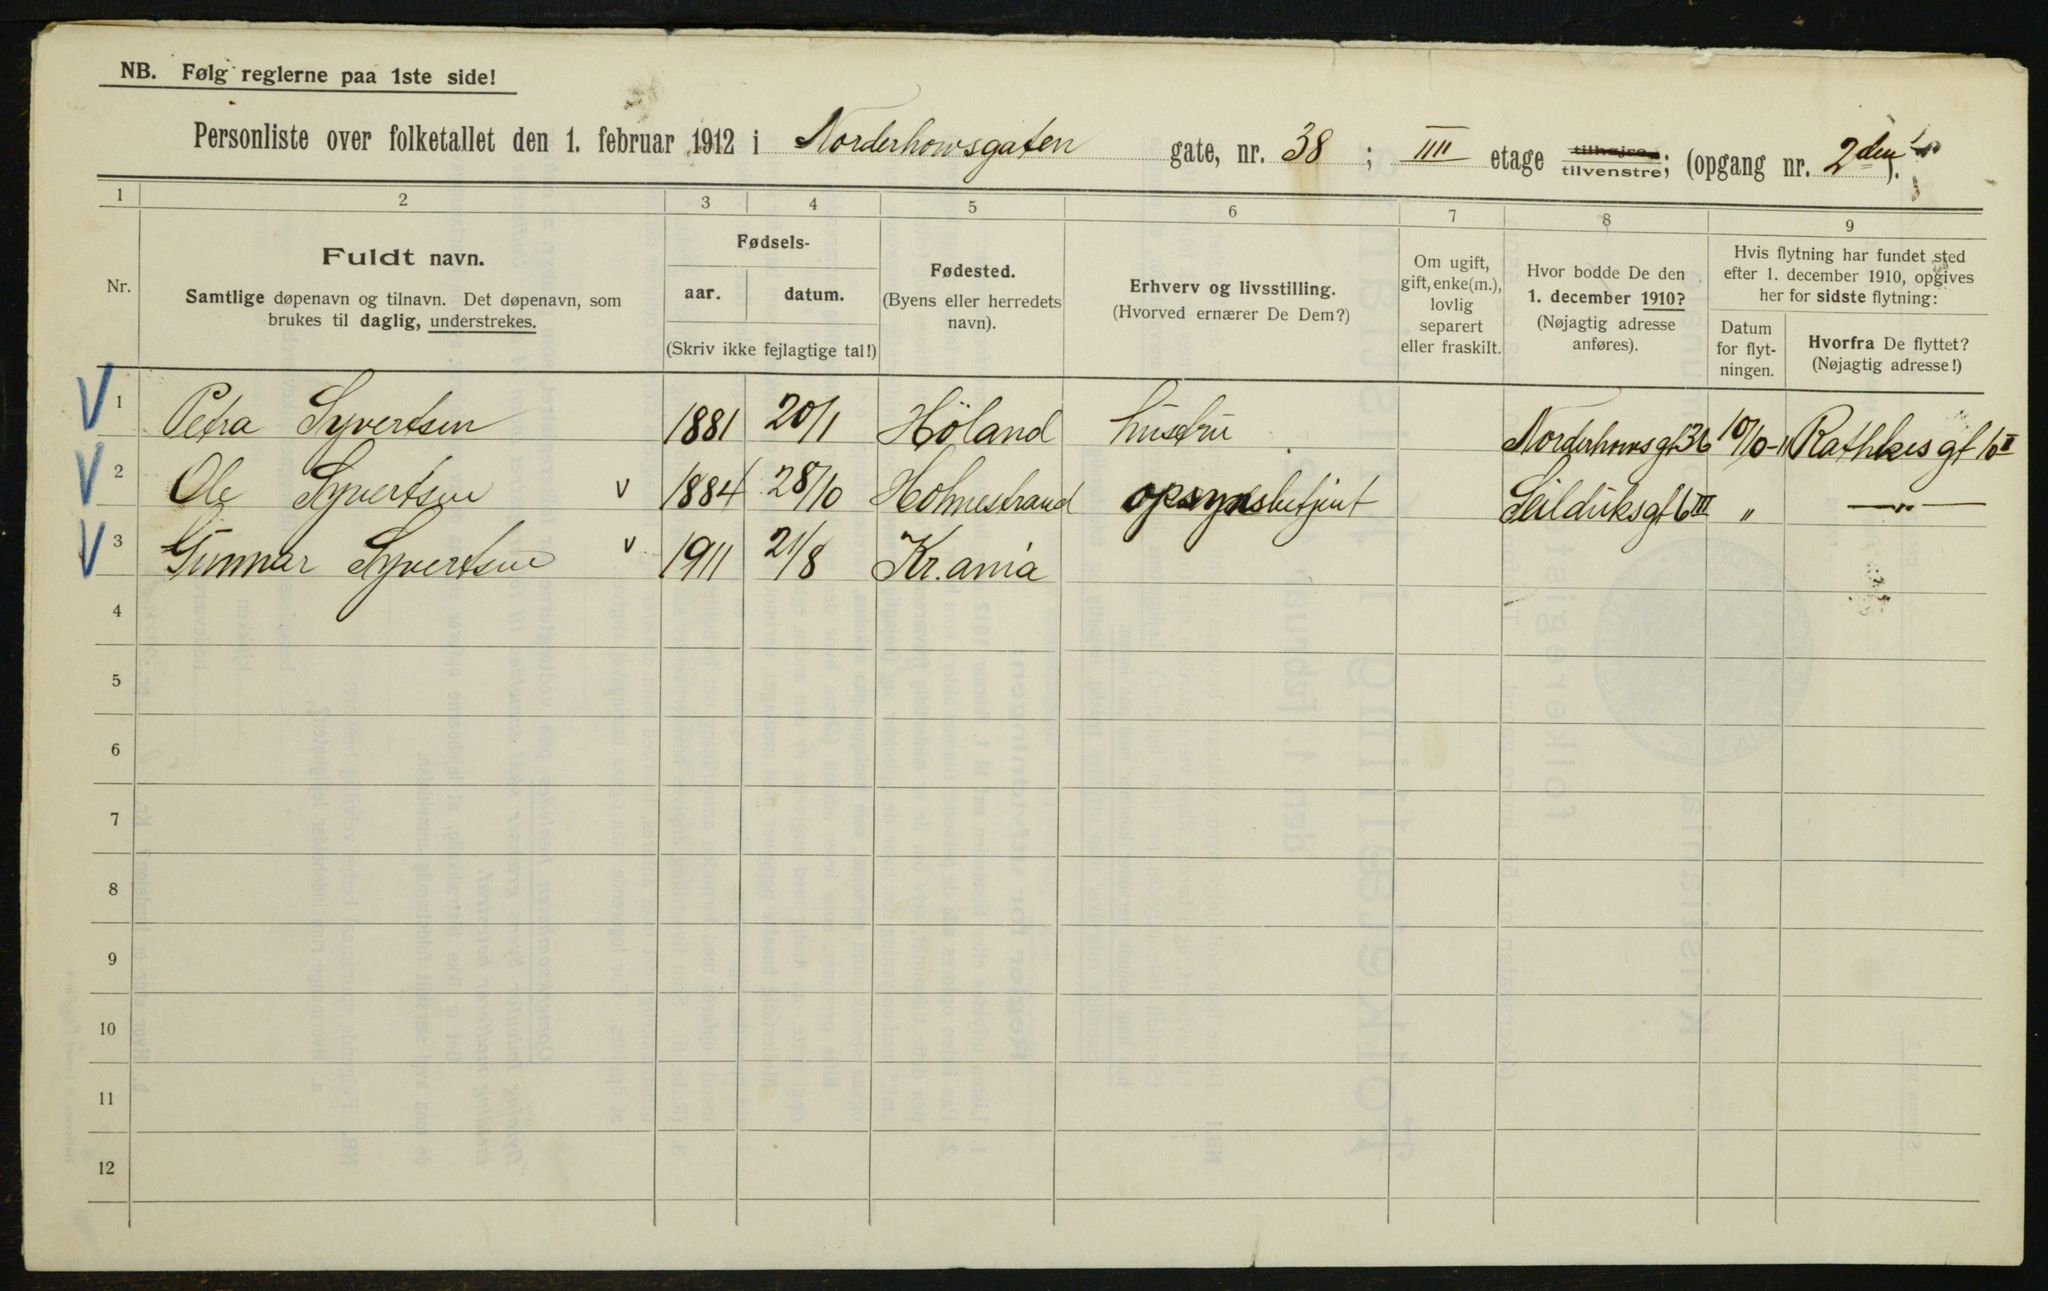 NB. Følg reglerne paa 1ste side!
Personliste over folketallet den 1. februar 1912 i Norderhowsgaten gate, nr. 38 ; IIII etage tilhøjre, tilvenstre; (opgang nr. 2den).
1 2 3 4 5 6 7 8 9
Nr.
Fuldt navn.
Samtlige døpenavn og tilnavn. Det døpenavn, som
brukes til daglig, understrekes.
Fødsels-
aar. datum.
(Skriv ikke fejlagtige tal!)
Fødested.
(Byens eller herredets
navn).
Erhverv og livsstilling.
(Hvorved ernærer De Dem?)
Om ugift,
gift, enke(m.),
lovlig
separert
eller fraskilt.
Hvor bodde De den
1. december 1910?
(Nøjagtig adresse
anføres).
Hvis flytning har fundet sted
efter 1. december 1910, opgives
her for sidste flytning:
Datum
for flyt-
ningen.
Hvorfra De flyttet?
(Nøjagtig adresse!)
V 1 Petra Syvertsen 1881 20/1 Höland hustru Norderhowsgt 36 10/10-11 Rathkesgt 16 II
V 2 Ole Syvertsen v 1884 28/10 Holmestrand opsynsbetjent Seilduksgt 6 III " —"—
V 3 Gunnar Syvertsen v 1911 21/8 Kr.ania
4
5
6
7
8
9
10
11
12